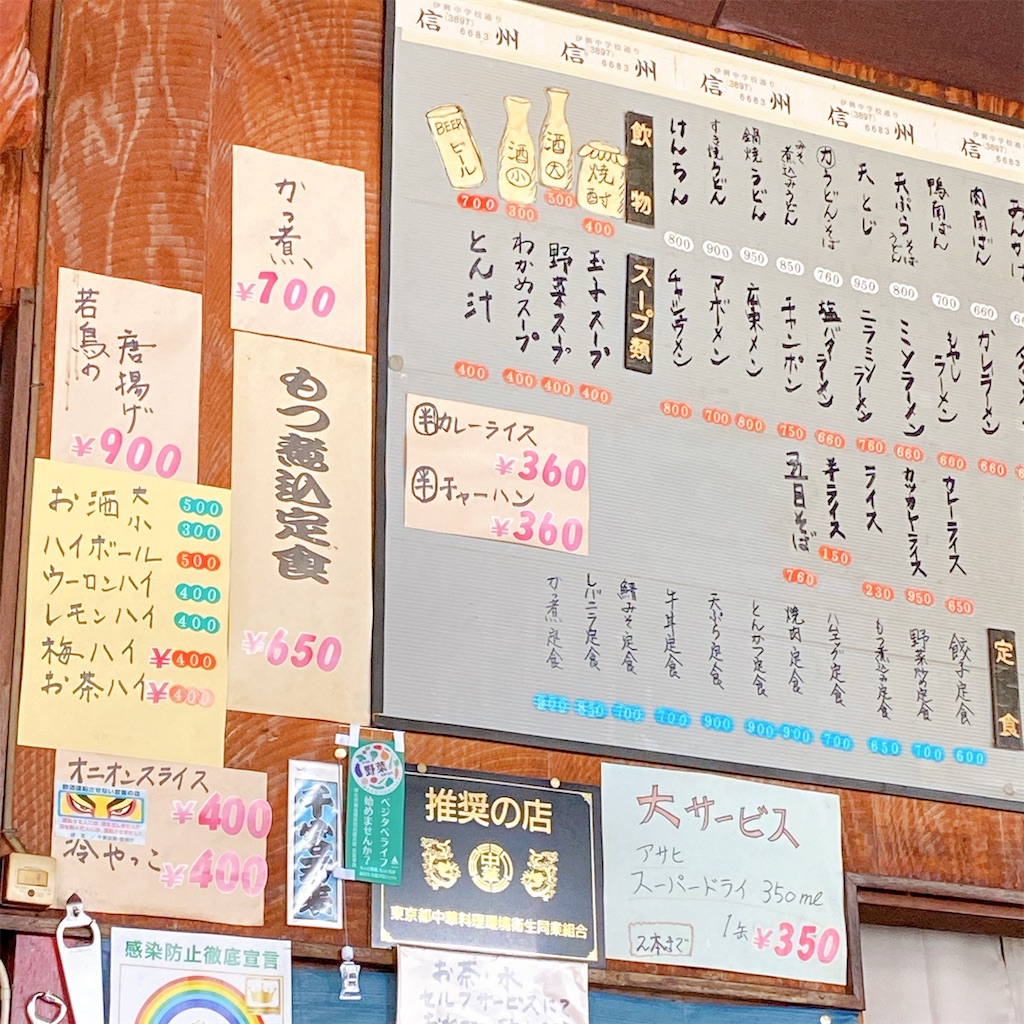 伊興中学校通り
信州
(3897)
6683
伊興中学校通り
信州
(3897)
6683
伊興中学校通り
信州
(3897)
6683
伊興中学校通り
信州
(3897)
6683
伊興中学校通り
信
(3897)
6683
BEER ビール
700
酒小
300
酒大
500
焼酎
400
飲物
けんちん
800
すき焼うどん
900
鍋焼うどん
950
みそ煮込みうどん
850
力うどん・そば
760
天とじ
950
天ぷらそばうどん
800
鴨南ばん
700
肉南ばん
660
スープ類
玉子スープ
400
野菜スープ
400
わかめスープ
400
とん汁
400
チャーシューメン
800
マーボーメン
700
広東メン
800
チャンポン
750
塩バターラーメン
660
ニラミソラーメン
760
ミソラーメン
660
もやしラーメン
660
カレーラーメン
660
五目そば
760
半ライス
150
ライス
230
カツカレーライス
950
カレーライス
650
半カレーライス
¥360
半チャーハン
¥360
定食
餃子定食
600
野菜炒め定食
700
もつ煮込み定食
650
ハムエッグ定食
700
焼肉定食
900
とんかつ定食
900
天ぷら定食
900
牛丼定食
700
鯖みそ定食
700
レバニラ定食
850
かつ煮定食
かつ煮
¥700
若鳥の
唐揚げ
¥900
もつ煮込定食
¥650
お酒 大 500
小 300
ハイボール 500
ウーロンハイ 400
レモンハイ 400
梅ハイ ¥400
お茶ハイ ¥400
オニオンスライス
¥400
冷やっこ
¥400
野菜
ベジタベライフ
始めませんか?
推奨の店
中華
東京都中華料理環境衛生同業組合
大サービス
アサヒ
スーパードライ 350ml
1缶 ¥350
2本まで
感染防止徹底宣言
お茶・水
セルフサービスにて